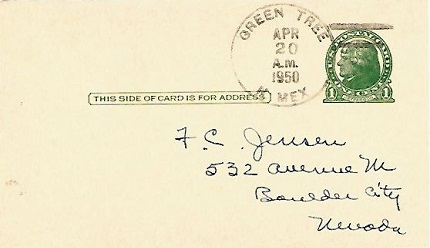 GREEN TREE
APR
20
A.M.
1950
N. MEX
THIS SIDE OF CARD IS FOR ADDRESS
1 1
F C Jensen
532 Avenue M
Boulder City
Nevada